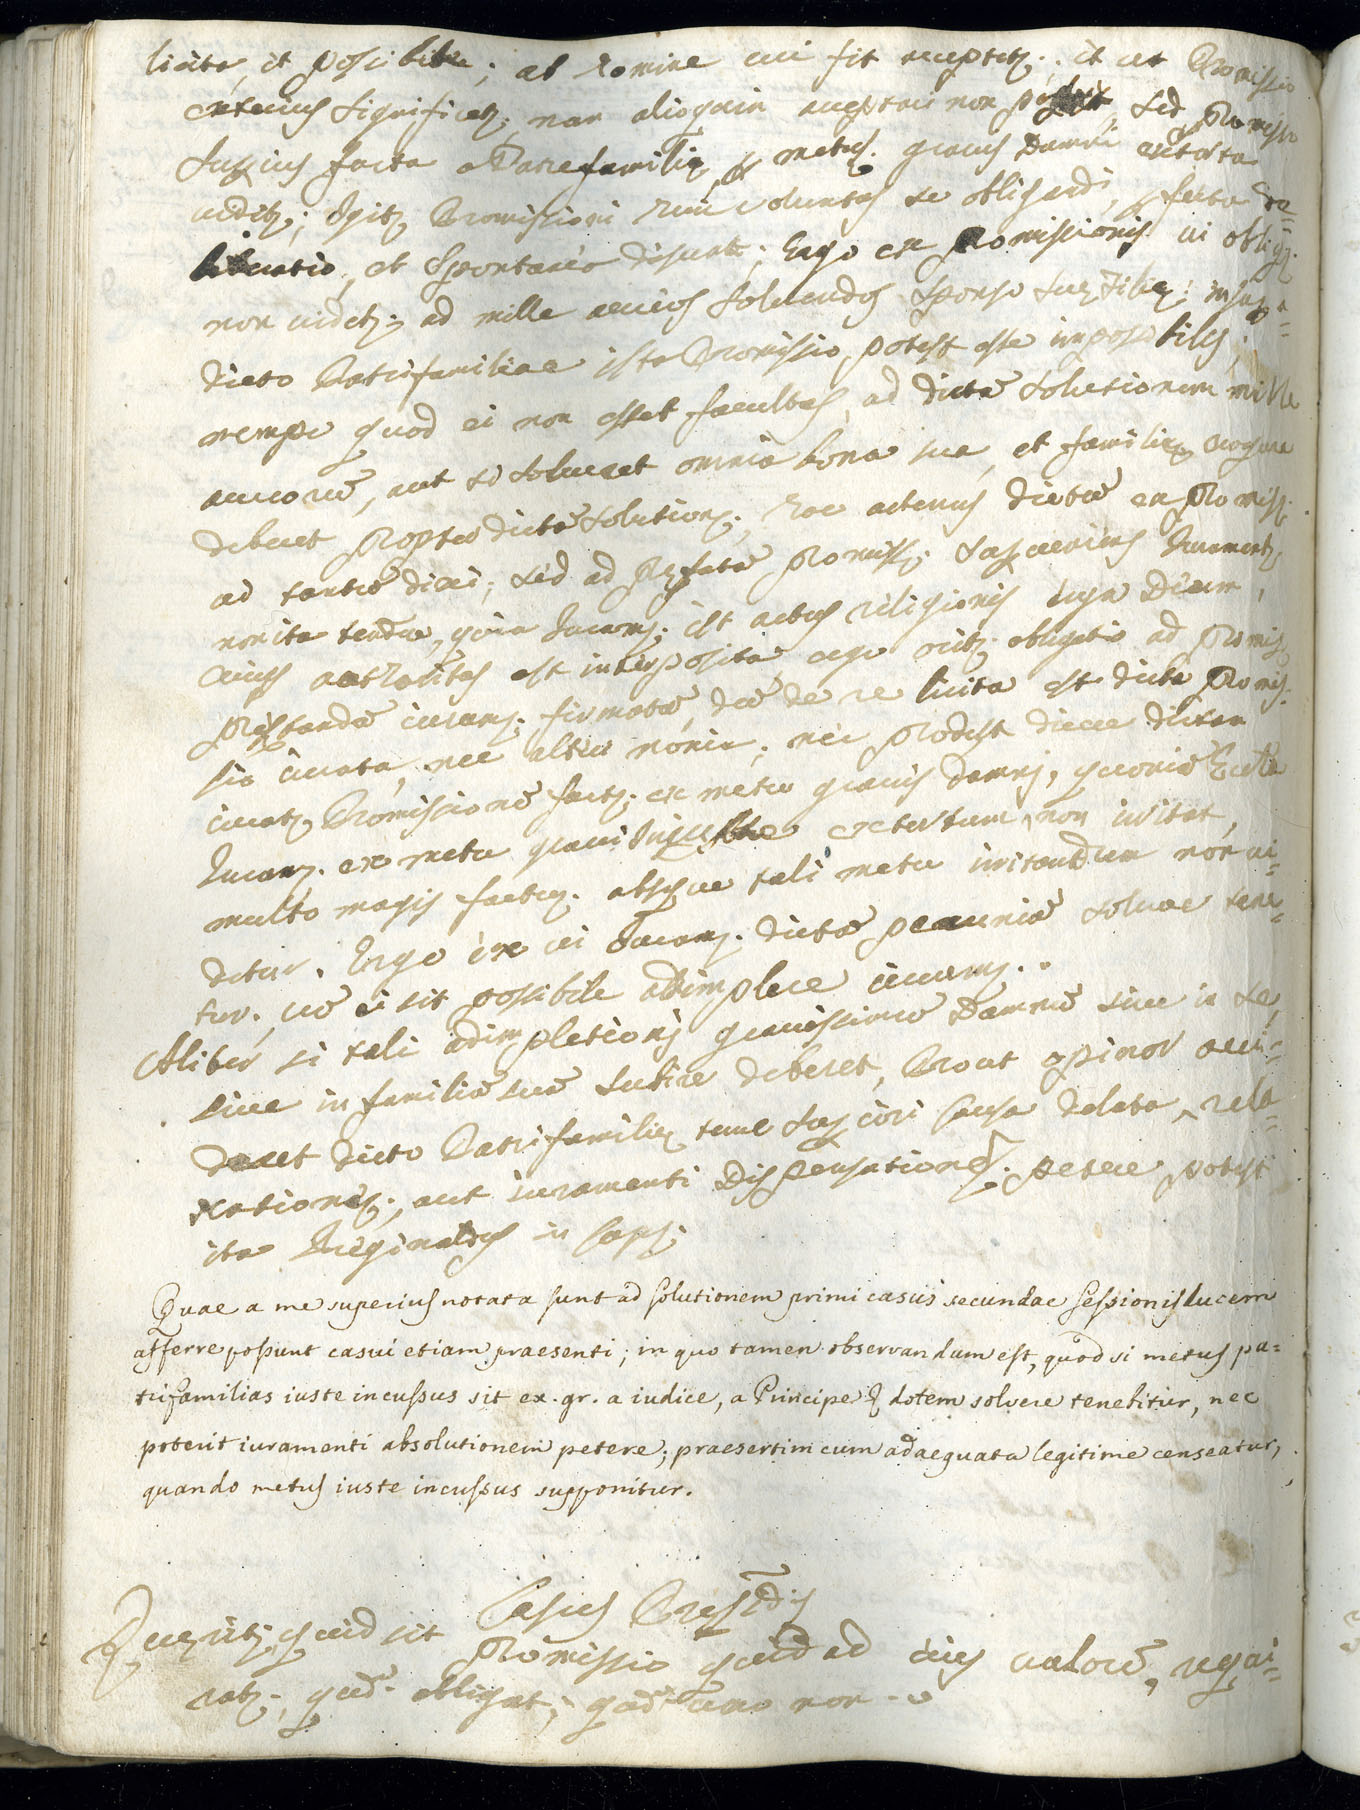 licita, et possibilis; ab homine cui fit acceptetr.; et ut Promissio
exterius significetr.; nam alioquin acceptari non possit, sed Promissio
superius facta a Patrefamiliæ, metus gravis Damni extorta
viditr.; igitr. Promissioni sine voluntas se obligandi, perfecta de=
liberatio, et spontanéo desunt; Ergo ex Promissionis vi obligr.
non videtr. ad mille aureos solvendos sponso suæ Filiæ; insuper
dicto Patrifamiliae ista Promissio potest esse impossibilis;
nempe quod ei non esset facultas, ad dictā solutionem mille
aureorū, aut si solveret omnia bona sua, et familiæ erogare
deberet propter dictā solutionē; hoc actenus dictū ex Promiss.
ad tantū dici; sed ad præfatā promiss. superveniens Iurament.
non ita tendū, quia Iuram. est actus religionis erga Deum,
cuius auctoritas est interposita ergo oritr. obligatio ad Promiss.
præstandā iuram. firmatā, dū de re licita est dicta Promis=
sio iurata, nec alteri noxia; nec prodest dicere dictam
iuratā Promissionē factā ex metu gravis damni, quoniā
Iuram. ex metu gravi iniuste extortum non irritat,
multo magis factum absque tali metu irritandum non vi=
detur. Ergo ex vi Iuram. dictā pecuniā solvere tene=
tur, cū ei sit possibile adimplere iuram..
Aliter si tali adimpletioni gravissimū Damnū sive in se,
sive in familiā suā subire deberet, Prout opinor acci=
deret dicto Patrifamiliæ tunc superiori causa delata, rela=
xationem, aut iuramenti Dispensationem petere potest
ita Reginaldus in cap.
Quae a me superius notata sunt ad solutionem primi casus secundae sessionis lucem
afferre possunt casui etiam praesenti; in quo tamen observandum est, quod si metus pa=
trifamilias iuste incussus sit ex. gr. a iudice, a Principe &c dotem solvere tenebitur, nec
poterit iuramenti absolutionem petere; praesertim cum adaequata legitime censeatur,
quando metus iuste incussus supponitur.
Casus
Quæritr. quid sit Promissio quid ad eius valorē requi=
ratr. quād obliget; quād vero non